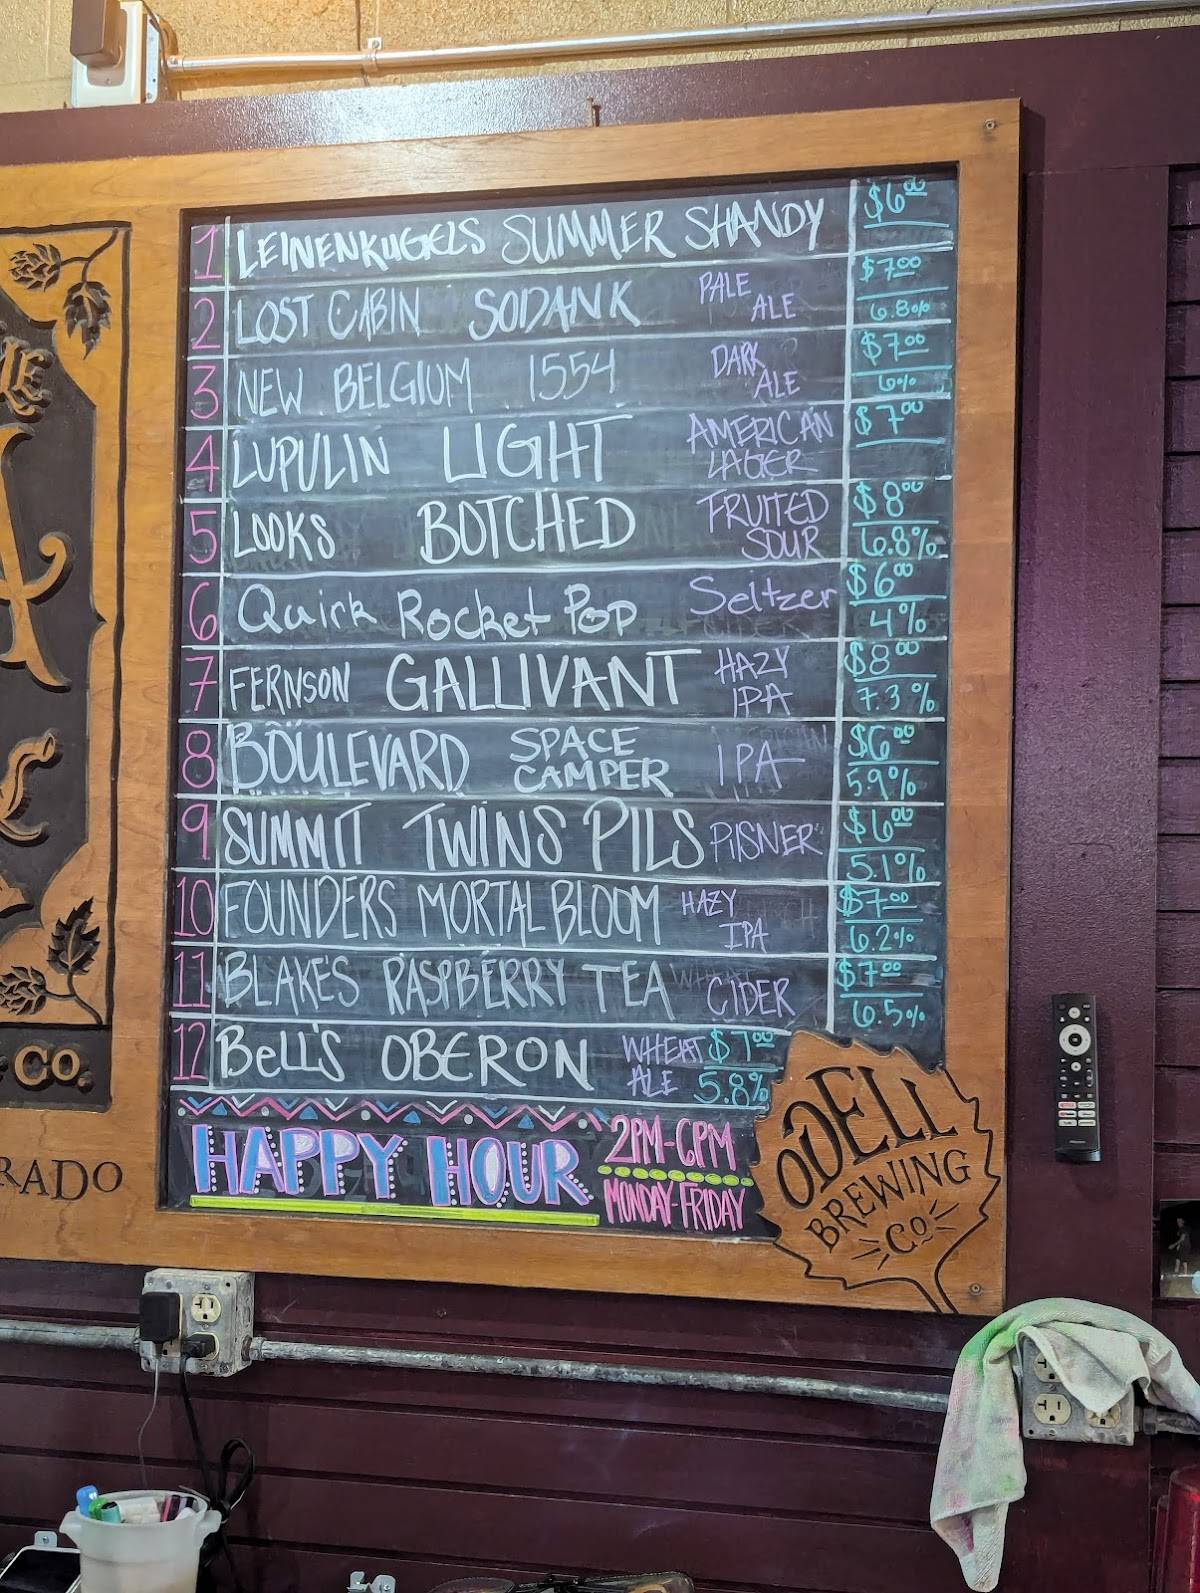 1 LEINENKUGELS SUMMER SHANDY $6.00
2 LOST CABIN SODANK PALE ALE $7.00 6.8%
3 NEW BELGIUM 1554 DARK ALE $7.00 6%
4 LUPULIN LIGHT AMERICAN LAGER $7.00
5 LOOKS BOTCHED FRUITED SOUR $8.00 6.8%
6 Quirk Rocket Pop Seltzer $6.00 4%
7 FERNSON GALLIVANT HAZY IPA $8.00 7.3%
8 BOULEVARD SPACE CAMPER IPA $6.00 5.9%
9 SUMMIT TWINS PILS PILSNER $6.00 5.1%
10 FOUNDERS MORTAL BLOOM HAZY IPA $7.00 6.2%
11 BLAKE'S RASPBERRY TEA CIDER $7.00 6.5%
12 BeLL'S OBERON WHEAT ALE $7.00 5.8%
HAPPY HOUR 2PM-6PM
MONDAY-FRIDAY
ODELL
BREWING
Co
Co.
RADO